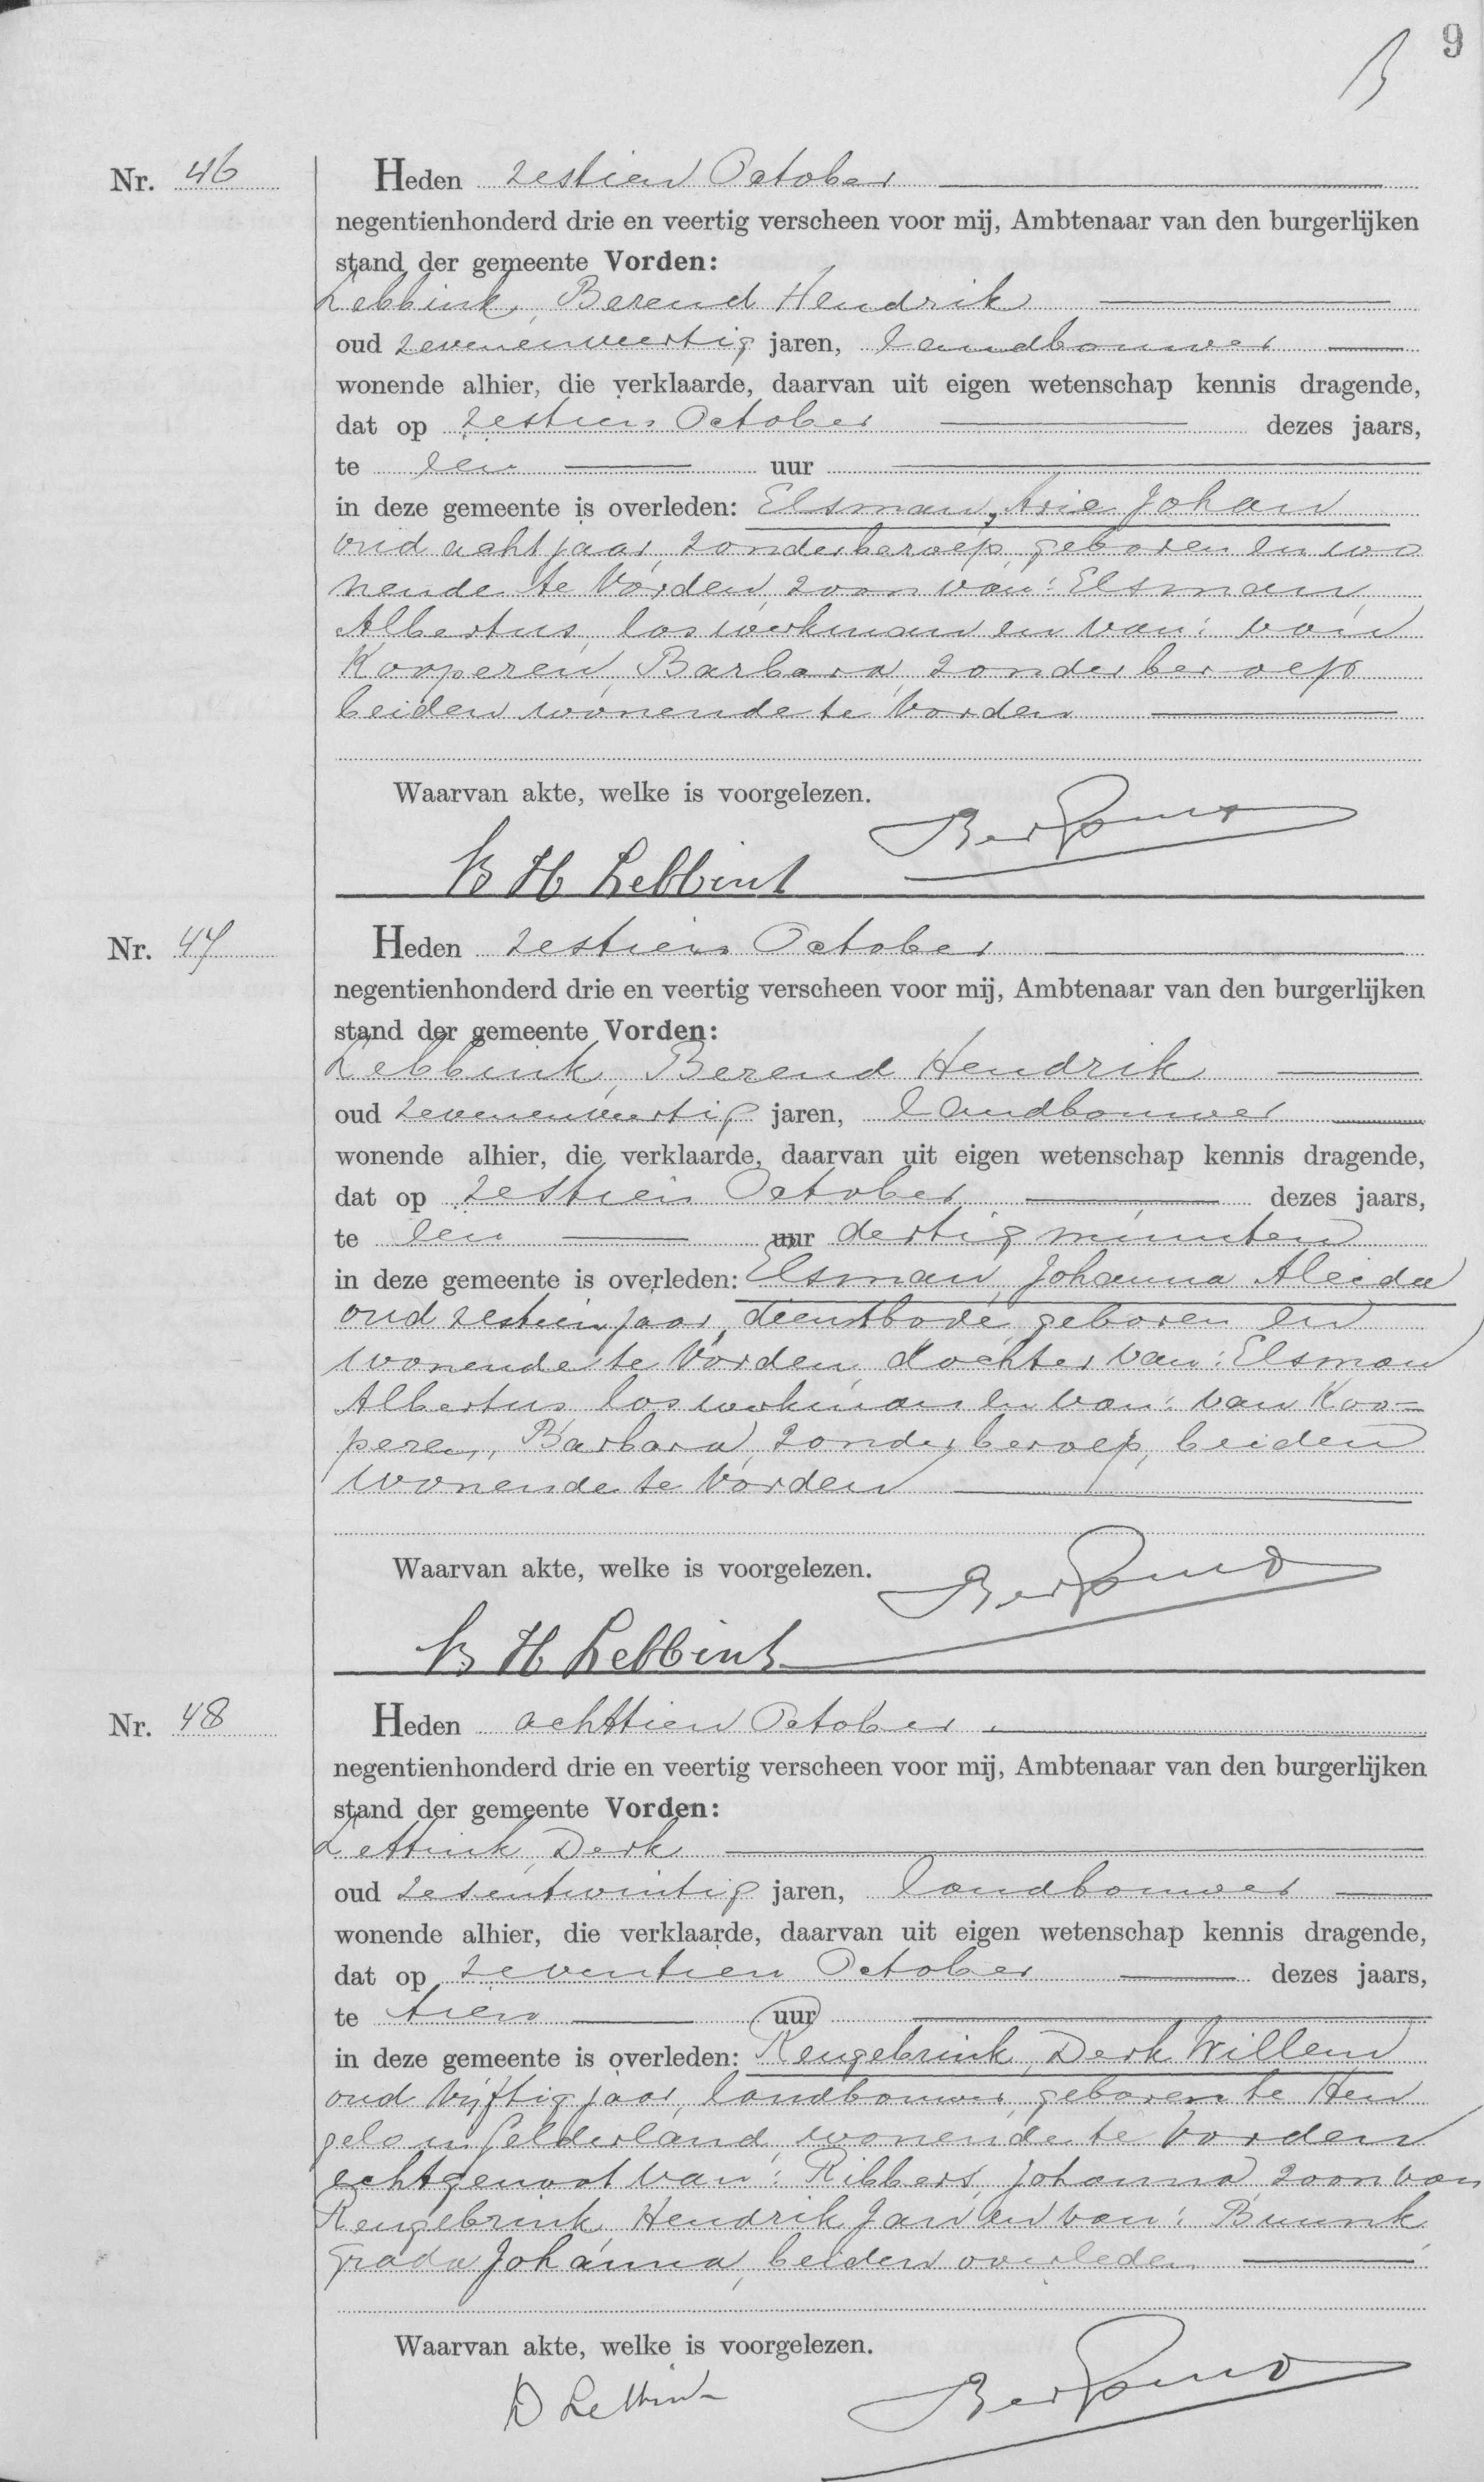 9
B
Nr. 46
Heden zestien October
negentienhonderd drie en veertig verscheen voor mij, Ambtenaar van den burgerlijken
stand der gemeente Vorden:
Lebbink, Berend Hendrik
oud zevenenveertig jaren, landbouwer
wonende alhier, die verklaarde, daarvan uit eigen wetenschap kennis dragende,
dat op zestien October dezes jaars,
te een uur
in deze gemeente is overleden: Elsman, Arie Johan
oud acht jaar, zonder beroep, geboren en wo
nende te Vorden, zoon van: Elsman,
Albertus, los werkman en van: van
Kooperen, Barbara, zonder beroep
beiden wonende te Vorden
Waarvan akte, welke is voorgelezen.
B H Lebbink
Nr. 47
Heden zestien October
negentienhonderd drie en veertig verscheen voor mij, Ambtenaar van den burgerlijken
stand der gemeente Vorden:
Lebbink, Berend Hendrik
oud zevenenveertig jaren, landbouwer
wonende alhier, die verklaarde, daarvan uit eigen wetenschap kennis dragende,
dat op zestien October dezes jaars,
te een uur dertig minuten
in deze gemeente is overleden: Elsman, Johanna Aleida
oud zestien jaar, dienstbode, geboren en
wonende te Vorden, dochter van: Elsman
Albertus los werkman en van: van Koo-
peren, Barbara, zonder beroep, beiden
wonende te Vorden
Waarvan akte, welke is voorgelezen.
B H Lebbink
Nr. 48
Heden achttien October
negentienhonderd drie en veertig verscheen voor mij, Ambtenaar van den burgerlijken
stand der gemeente Vorden:
Lettink, Derk
oud zesentwintig jaren, landbouwer
wonende alhier, die verklaarde, daarvan uit eigen wetenschap kennis dragende,
dat op zeventien October dezes jaars,
te tien uur
in deze gemeente is overleden: Rengebrink, Derk Willem
oud vijftig jaar, landbouwer, geboren te Hen
gelo in Gelderland, wonende te Vorden
echtgenoot van: Ribbers, Johanna, zoon van
Rengebrink, Hendrik Jan en van: Buunk,
Grada Johanna, beiden overleden
Waarvan akte, welke is voorgelezen.
D Lettink